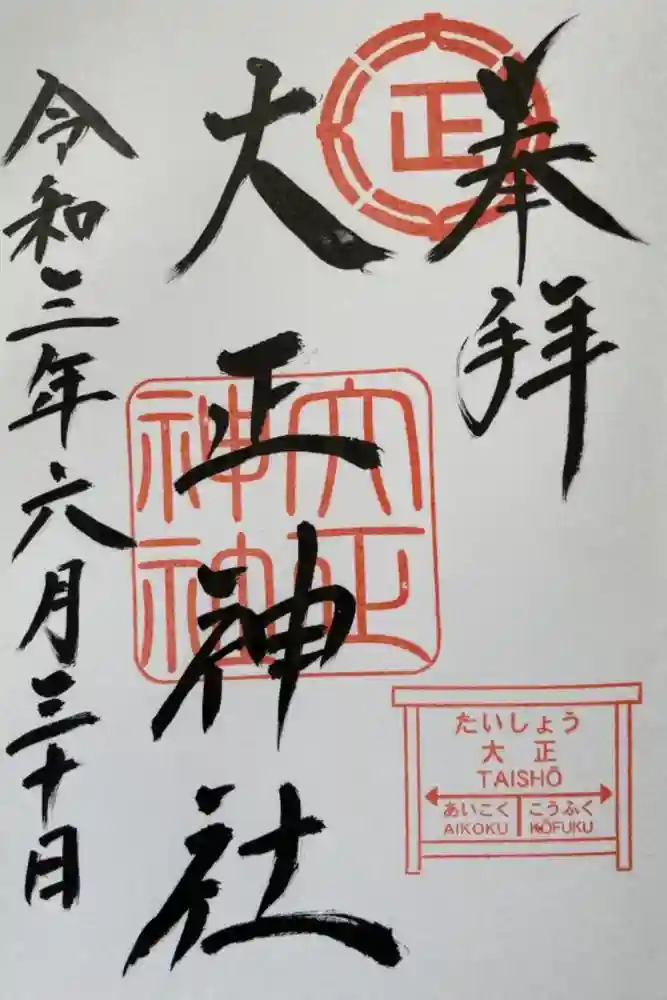 奉拝
正
大正神社
大正
神社
令和三年六月三十日
たいしょう
大正
TAISHŌ
あいこく こうふく
AIKOKU KŌFUKU